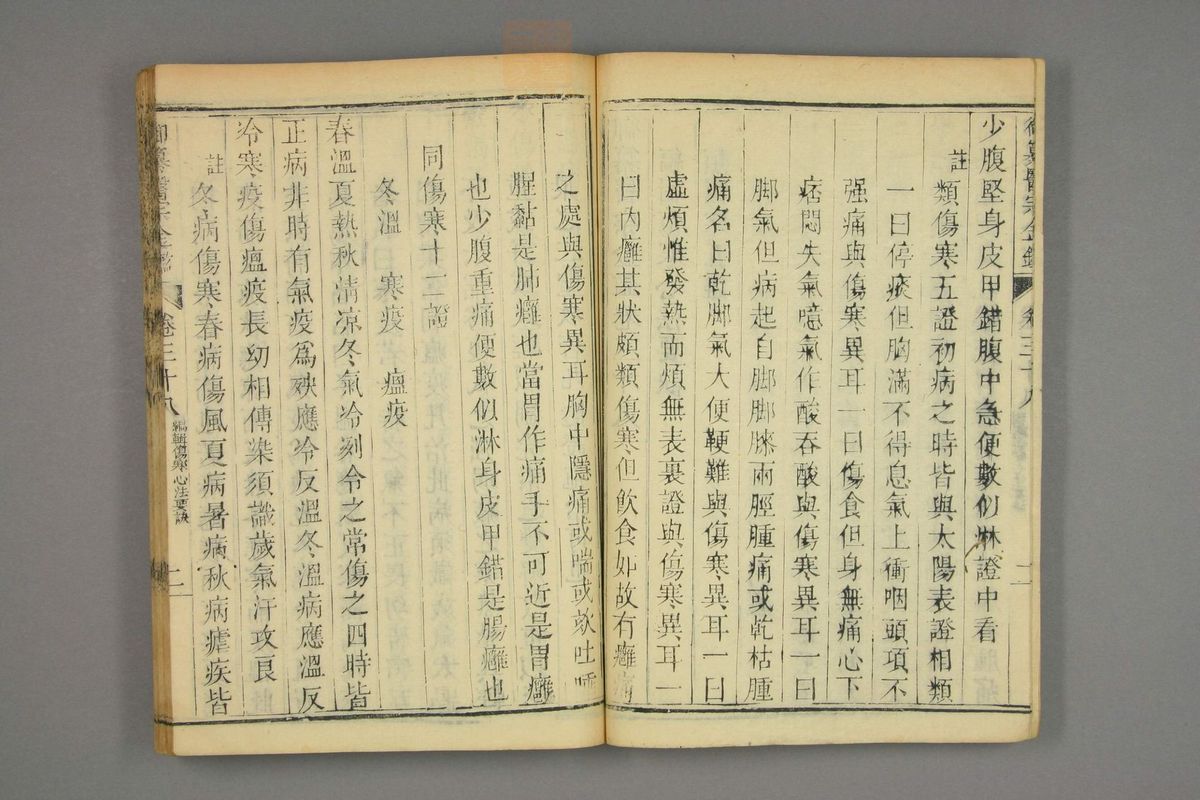 少腹堅身皮甲錯腹中急便數似淋證中看
註 類傷寒五證初病之時皆與太陽表證相類
一曰停痰但胸滿不得息氣上衝咽頭項不
强痛與傷寒異耳一曰傷食但身無痛心下
痞悶失氣噫氣作酸吞酸與傷寒異耳一曰
脚氣但病起自脚脚膝兩脛腫痛或乾枯腫
痛名曰乾脚氣大便鞕難與傷寒異耳一曰
虛煩惟發熱而煩無表裏證與傷寒異耳一
曰內癰其狀頗類傷寒但飲食如故有癰痛
之處與傷寒異耳胸中隱痛或喘或欬吐唾
腥黏是肺癰也當胃作痛手不可近是胃癰
也少腹重痛便數似淋身皮甲錯是腸癰也
同傷寒十二證
冬溫 寒疫 瘟疫
春溫夏熱秋淸凉冬氣冷列令之常傷之四時皆
正病非時有氣疫爲殃應冷反溫冬溫病應溫反
冷寒疫傷瘟疫長幼相傳染須識歲氣汗攻良
註 冬病傷寒春病傷風夏病暑病秋病瘧疾皆
御纂醫宗金鑑 卷三十八 編輯傷寒心法要訣 二